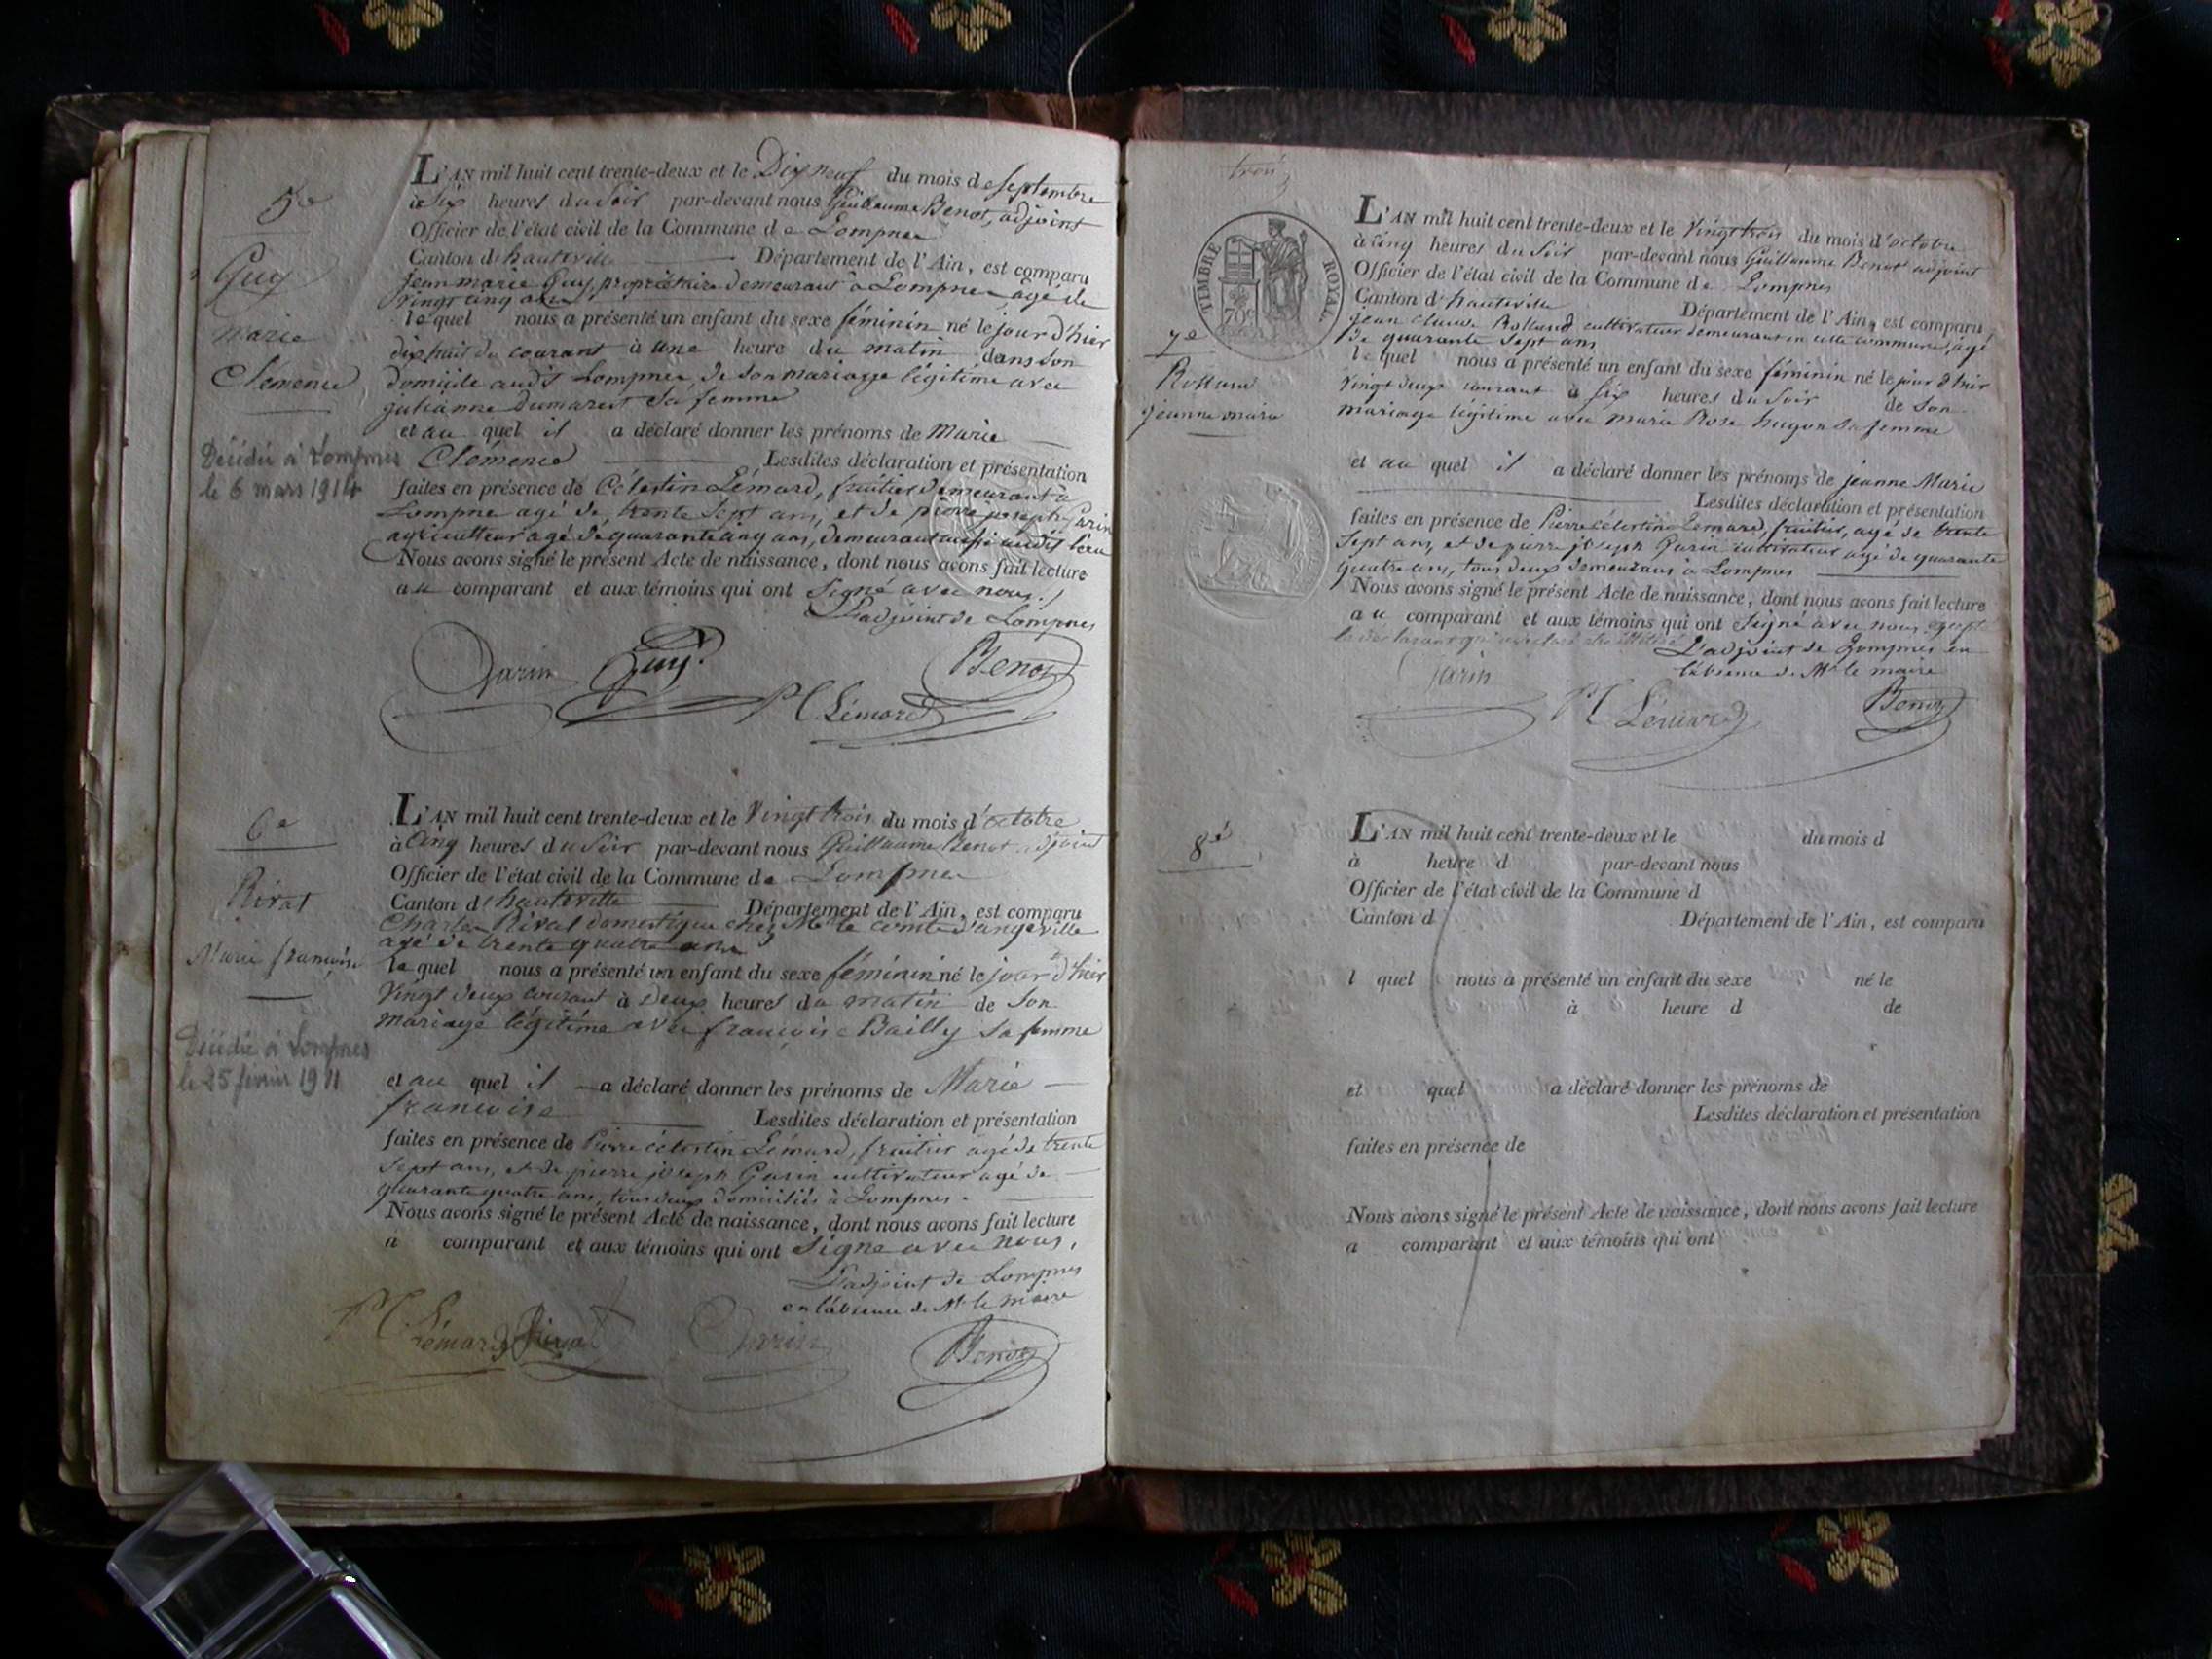 5e
Guy
marie
Clémence
Décédée à Lompnes
le 6 mars 1914
L'AN mil huit cent trente-deux et le Dix neuf du mois de septembre
à Six heures du Soir par-devant nous Guillaume Benot, adjoint
Officier de l'état civil de la Commune de Lompnes
Canton d'hauteville Département de l'Ain, est comparu
jean marie Guy, propriétaire demeurant à Lompnes agé de
vingt cinq ans
lequel nous a présenté un enfant du sexe féminin né le jour d'hier
dix huit du courant à une heure du matin dans son
domicile audit Lompnes, de son mariage légitime avec
julianne Dumarest sa femme
et au quel il a déclaré donner les prénoms de Marie
Clemence Lesdites déclaration et présentation
faites en présence de Célestin Lémard, fruitier demeurant à
Lompnes agé de trente sept ans, et de pierre joseph Garin
agriculteur agé de quarante cinq ans, demeurant aussi audit lieu
Nous avons signé le présent Acte de naissance, dont nous avons fait lecture
au comparant et aux témoins qui ont signé avec nous./
L'adjoint de Lompnes
Garin Guy. Benot
PC Lémard
6e
Rivat
Marie françoise
Décédée à Lompnes
le 25 février 1911
L'AN mil huit cent trente-deux et le Vingt trois du mois d'octobre
à Cinq heures du Soir par-devant nous Guillaume Benot adjoint
Officier de l'état civil de la Commune de Lompnes
Canton d'hauteville Département de l'Ain, est comparu
Charles Rivat domestique chez Mr le comte d'angeville
agé de trente quatre ans
lequel nous a présenté un enfant du sexe féminin né le jour d'hier
Vingt deux courant à deux heures du matin de son
mariage légitime avec françoise Bailly sa femme
et au quel il a déclaré donner les prénoms de Marie
françoise Lesdites déclaration et présentation
faites en présence de Pierre célestin Lémard, fruitier agé de trente
sept ans, et de pierre joseph Garin cultivateur agé de
quarante quatre ans, tous deux domiciliés à Lompnes.
Nous avons signé le présent Acte de naissance, dont nous avons fait lecture
a comparant et aux témoins qui ont signé avec nous,
L'adjoint de Lompnes
en l'absence de Mr le maire
PC Lémard Rivat Garin Benot
trois
TIMBRE ROYAL
70c
7e
Rolland
jeanne marie
L'AN mil huit cent trente-deux et le Vingt trois du mois d'octobre
à Cinq heures du Soir par-devant nous Guillaume Benot adjoint
Officier de l'état civil de la Commune de Lompnes
Canton d'hauteville Département de l'Ain, est comparu
jean claude Rolland cultivateur demeurant en cette commune, agé
de quarante sept ans
lequel nous a présenté un enfant du sexe féminin né le jour d'hier
vingt deux courant à six heures du Soir de son
mariage légitime avec marie Rose hugon sa femme
et au quel il a déclaré donner les prénoms de jeanne Marie
Lesdites déclaration et présentation
faites en présence de Pierre célestin Lemard, fruitier, agé de trente
sept ans, et de pierre joseph Garin cultivateur agé de quarante
quatre ans, tous deux demeurans à Lompnes
Nous avons signé le présent Acte de naissance, dont nous avons fait lecture
au comparant et aux témoins qui ont signé avec nous, excepté
L'adjoint de Lompnes en
l'absence de Mr le maire
Garin PC Lémard Benot
8e
L'AN mil huit cent trente-deux et le du mois d
à heure d par-devant nous
Officier de l'état civil de la Commune d
Canton d Département de l'Ain, est comparu
l quel nous a présenté un enfant du sexe né le
à heure d de
et quel a déclaré donner les prénoms de
Lesdites déclaration et présentation
faites en présence de
Nous avons signé le présent Acte de naissance, dont nous avons fait lecture
a comparant et aux témoins qui ont